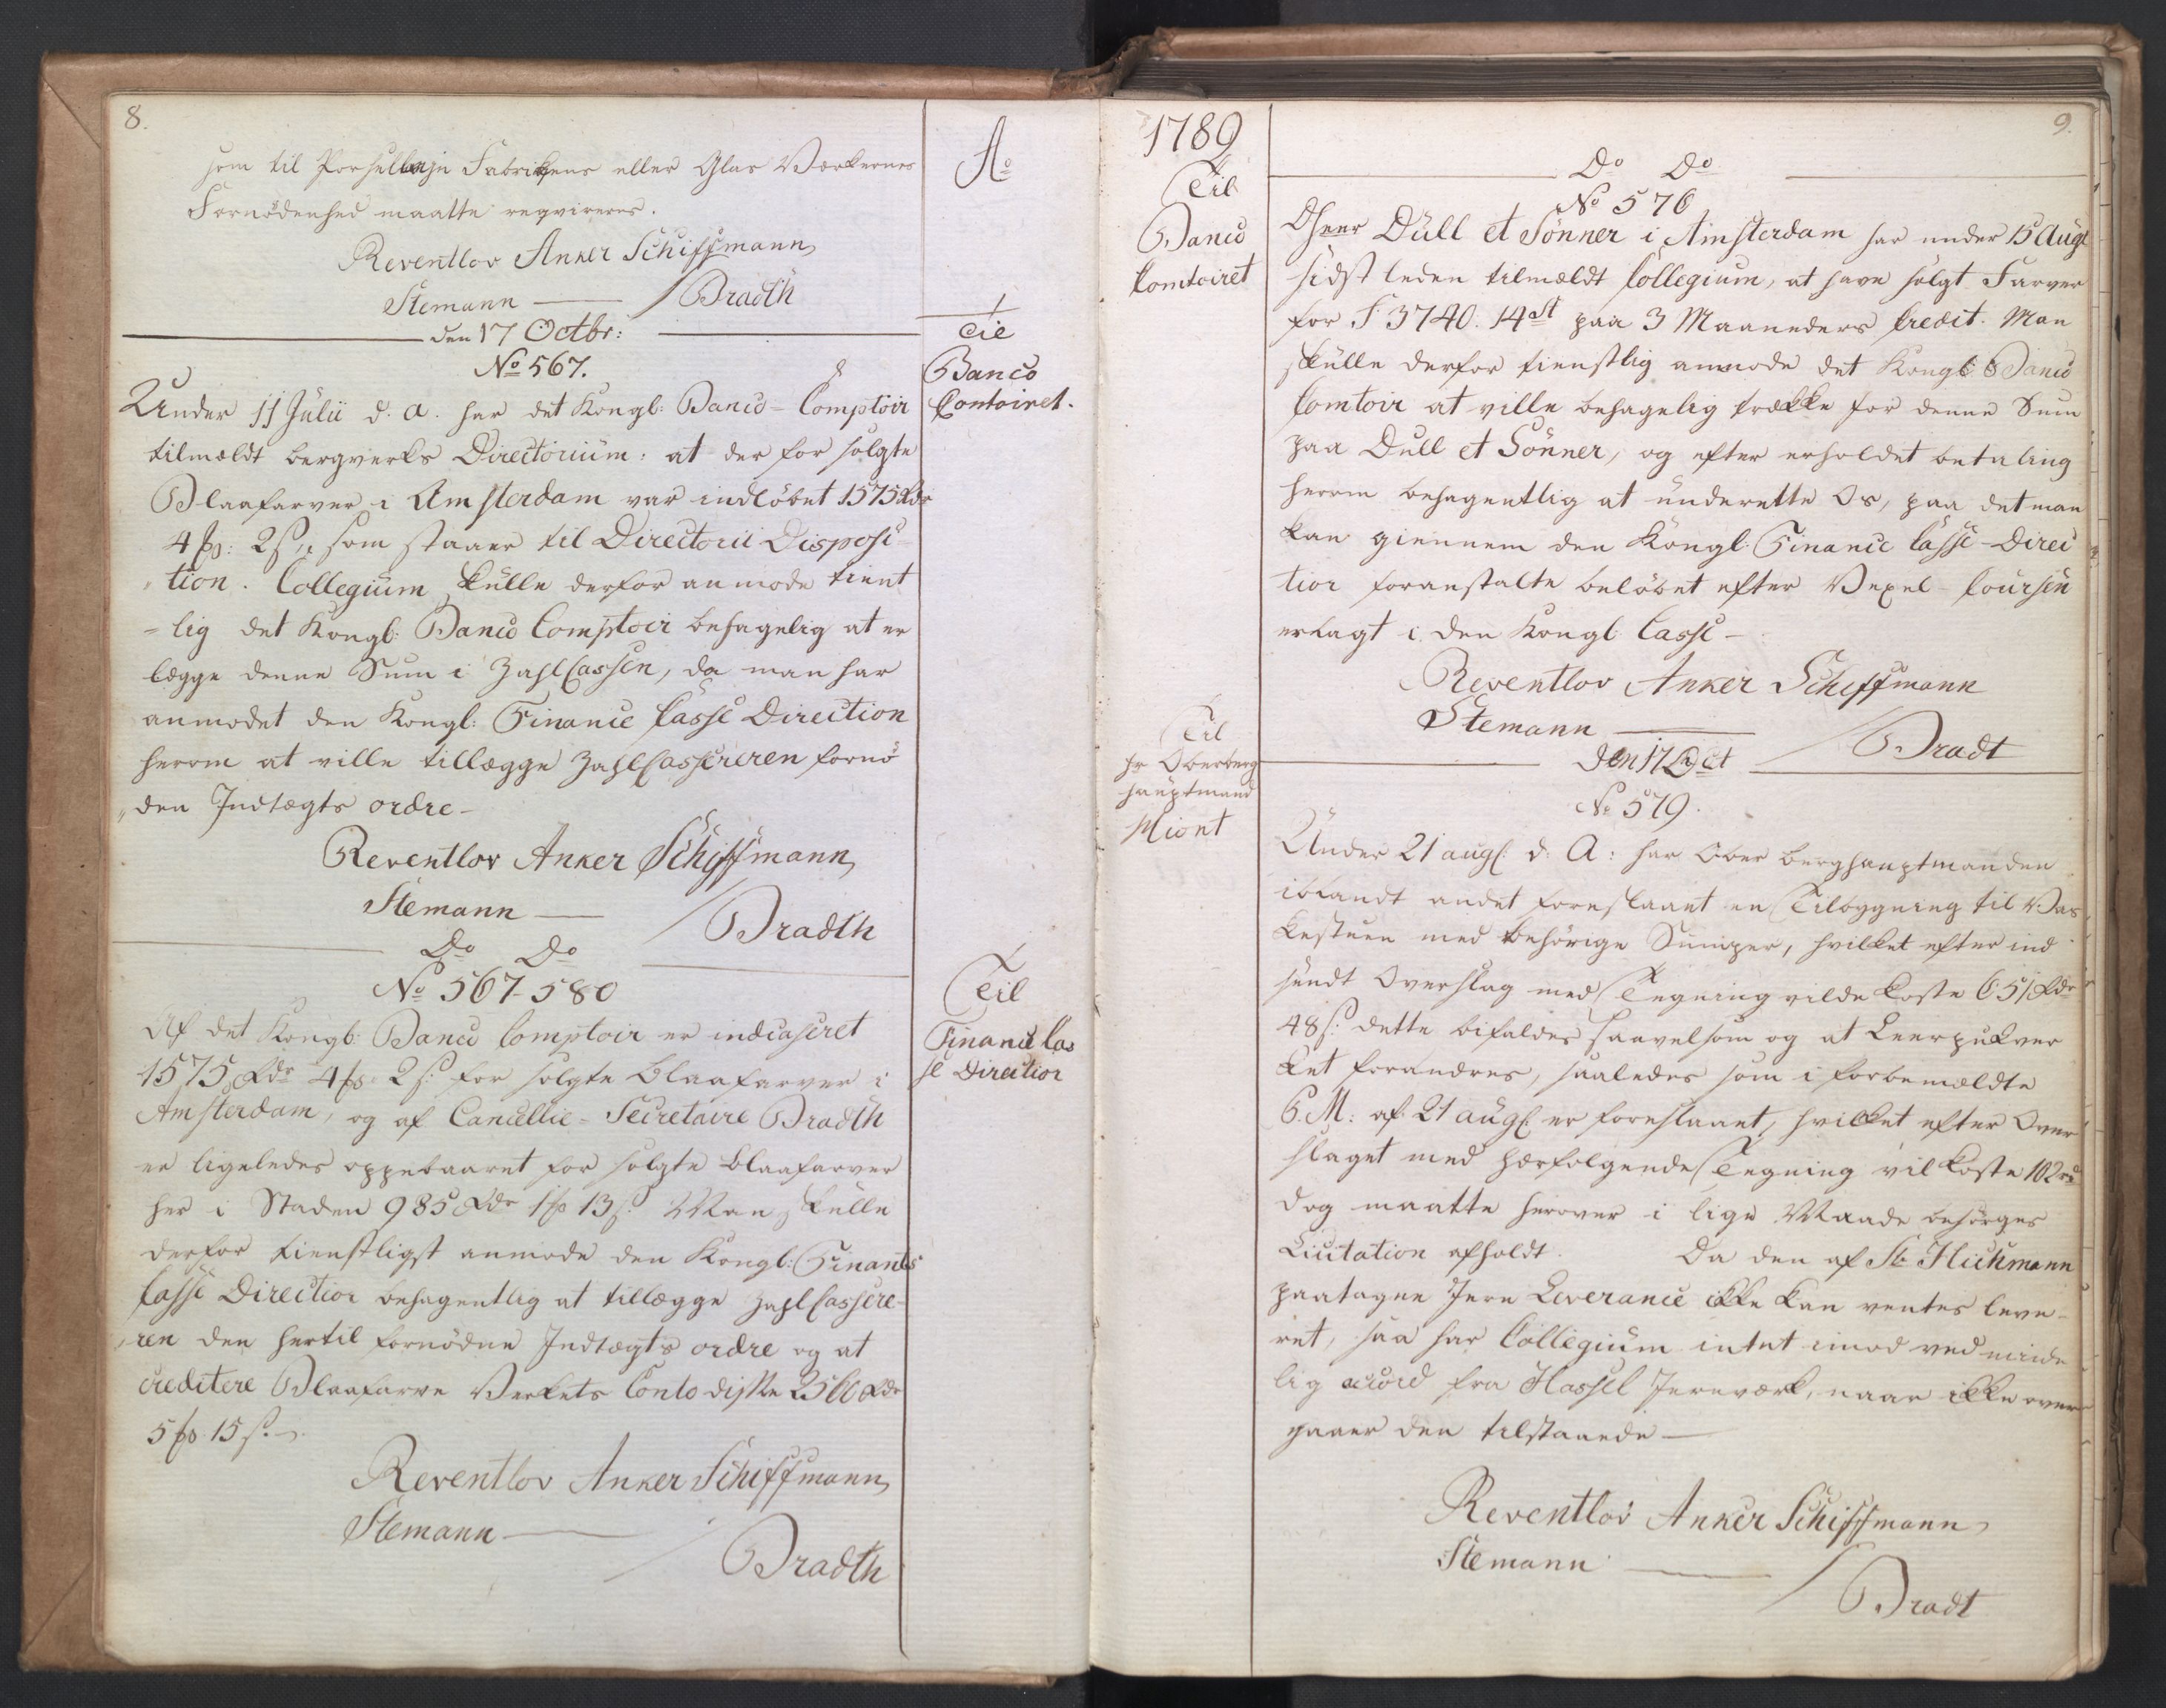 8.
som til Porsellejn Fabrikens eller Glas Værkernes
Fornødenhed maatte reqvireres.
Reventlov Anker Schiffmann
Stemann — / Bradth
den 17 Octbr:
No 567.
Under 11 Julii d. a. har det Kongl: Banco-Comptoir
tilmældt bergverks Directorium: at der for solgte
Blaafarver i Amsterdam var indløbet 1575 Rdr
4 ß: 2 s, som staaer til Directorii Disposi-
tion. Collegium skulle derfor anmode tienst
-lig det Kongl: Banco Comptoir behagelig at er
lægge denne Sum i Zahl Cassen, da man har
anmodet den Kongl: Finance Casse Direction
herom at ville tillægge Zahl Cassereren fornø
den Indtægts ordre -
Reventlov Anker Schiffmann
Stemann — / Bradth
Do Do
No 567-580
Af det Kongl: Banco Comptoir er indcaseret
1575 Rdr 4 ß 2 s: for solgte blaafarver i
Amsterdam, og af Cancellie-Secretaire Bradth
er ligeledes oppebaaret for solgte blaafarver
her i Staden 985 Rdr 1 ß 13 s. Man skulle
derfor tienstligst anmode den Kongl: Finants
Casse Direction behagentlig at tillægge Zahl Cassere-
ren den hertil fornødne Indtægts ordre og at
creditere Blaafarve Verkets Conto disse 2560 Rdr
5 ß 15 s. -
Reventlov Anker Schiffmann
Stemann — / Bradth
Ao
Til
Banco
Contoiret.
Til
Finance Cas
se Direction
1789
Til
Banco
Comtoiret
Til
hr Oberberg
hauptmand
Hiort
9.
Do Do
No 576
Dhrr Düll et Sønner i Amsterdam har under 15 Augt
sidst leden tilmældt Collegium, at have solgt Farver
for F 3740. 14 st paa 3 Maaneders Credit. Man
skulle derfor tienstlig anmode det Kongl: Banco
Comtoir at ville behagelig trække for denne Sum
paa Dull et Sønner, og efter erholdet betaling
herom behagentlig at underette Os, paa det man
kan giennem den Kongl: Finance Casse-Direc
tion foranstalte beløbet efter Vexel-Coursen
erlagt i den Kongl: Casse -
Reventlov Anker Schiffmann
Stemann — / Bradt
Den 17 Oct
No 579.
Under 21 augt: d: A: har Ober berghauptmanden
iblandt andet foreslaaet en Tilbygning til Vas
kestuen med behørige Sumper, hvilket efter ind
sendt Overslag med Tegning vilde koste 651 Rdr
48 s: dette bifaldes saavelsom og at Leerpukver
ket forandres, saaledes som i forbemældte
P. M: af 21 augt er foreslaaet, hvilket efter Over
slaget med herfølgende Tegning vil koste 102 rd
dog maatte herover i lige Maade besørges
Licitation afholdt. Da den af Sr Hickmann
paatagne Jern Leverance ikke kan ventes leve-
ret, saa har Collegium intet imod ved minde
lig accord fra Hassel Jernværk, naar ikke over
gaaer den tilstaaede —
Reventlov Anker Schiffmann
Stemann — / Bradt